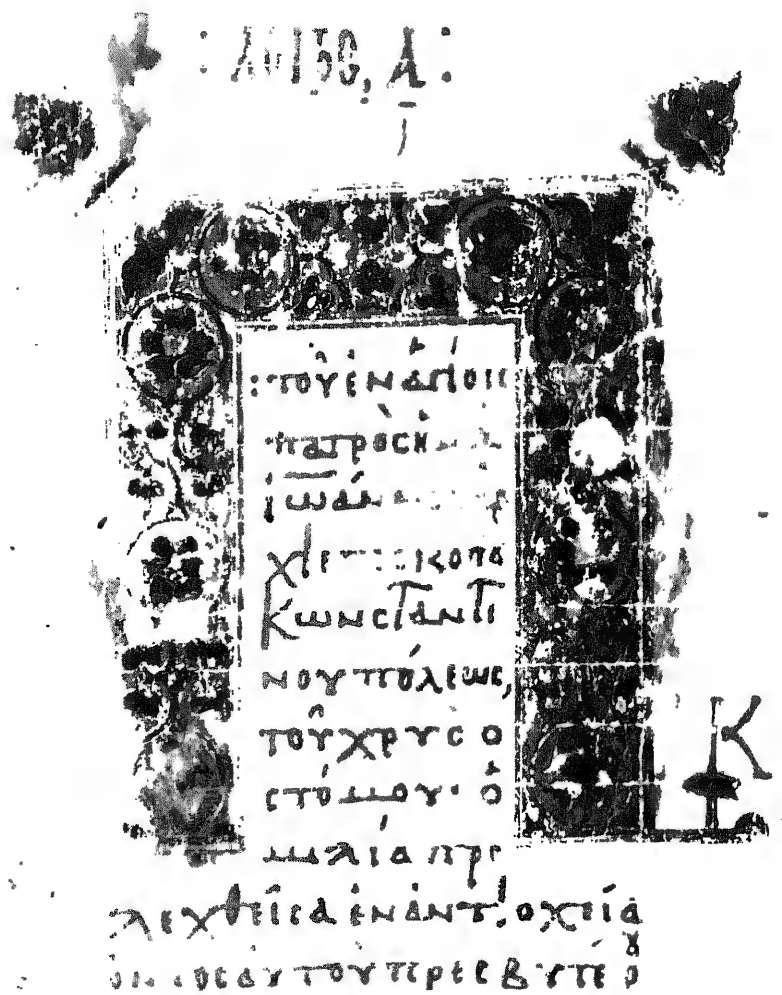 : ΛΟΓΟC, Α :
:τοῦ ἐν ἁγίοις
πατρὸς
ἰωάννου ἀρ
χιεπισκόπου
Κωνσταντι
νουπόλεως,
τοῦ χρυσο
στόμου· ὁ
μιλία πρ
λεχθεῖσα ἐν ἀντιοχείᾳ
αὐτοῦ πρεσβυτέρου